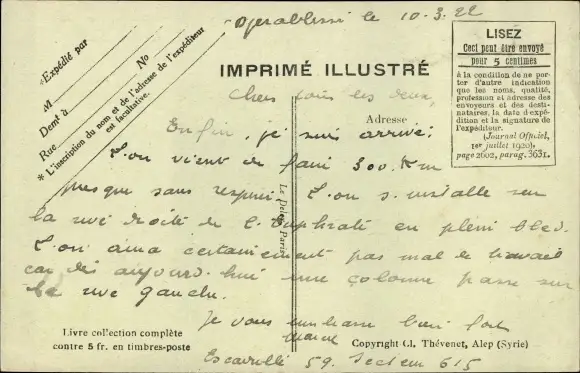 Djerabliss le 10.3.22
Expédié par
M
Demt à
Rue No
* L'inscription du nom et de l'adresse de l'expéditeur
est facultative.
IMPRIMÉ ILLUSTRÉ
LISEZ
Ceci peut être envoyé
pour 5 centimes
à la condition de ne por-
ter d'autre indication
que les noms, qualité,
profession et adresse des
envoyeurs et des desti-
nataires, la date d'expé-
dition et la signature de
l'expéditeur.
(Journal Officiel,
1er juillet 1920)
page 2602, parag. 3631.
Adresse
Chers tous les deux,
Enfin, je suis arrivé.
L'on vient de faire 300 Km
presque sans respirer. L'on s'installe sur
la rive droite de l'Euphrate en plein bled.
L'on aura certainement pas mal de travail
car dès aujourd'hui une colonne passe sur
la rive gauche.
Je vous embrasse bien fort
Marcel
59. Secteur 615
Le Deley, Paris
Livre collection complète
contre 5 fr. en timbres-poste
Copyright Cl. Thévenet, Alep (Syrie)